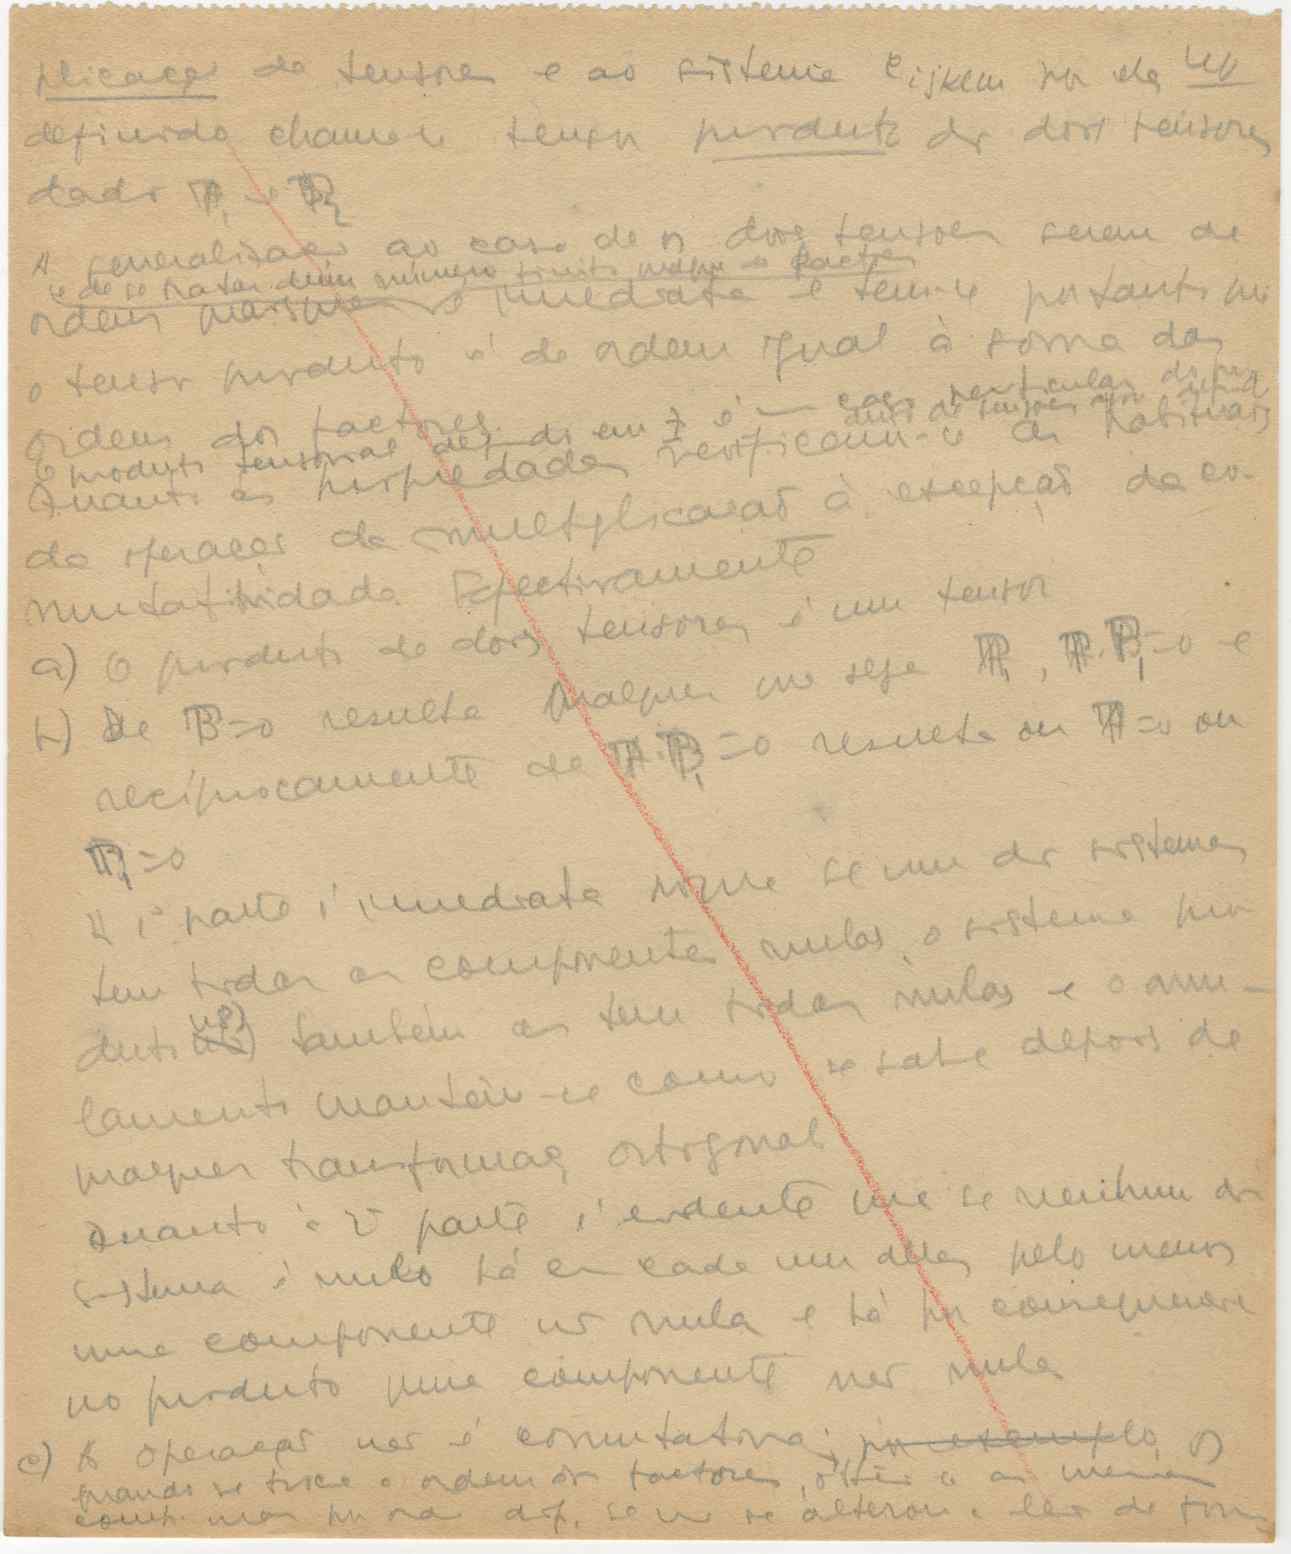 plicação de tensores e ao sistema c ijklm por ela
definido chama-se tensor produto dos dois tensores
dados A e B
A generalisação ao caso de os dois tensores serem de
e de se tratar dum número finito qualquer de factores
ordem qualquer é imediata e tem-se portanto que
o tensor produto é de ordem igual à soma das
ordens dos factores.
O produto tensorial def. di em é caso particular do pro
duto de tensores
Quanto às propriedades verificam-se as habituais
da operação da multiplicação à excepção da co-
mutatividade Efectivamente
a) O produto de dois tensores é um tensor
b) De B=0 resulta qualquer que seja A, A.B=0 e
reciprocamente de A.B=0 resulta ou A=0 ou
B=0
A 1ª parte é imediata porque se um dos sistemas
tem todas as componentes nulas, o sistema pro
duto também as tem todas nulas e o anu-
lamento mantém-se como se sabe depois de
qualquer transformação ortogonal
Quanto à 2ª parte é evidente que se nenhum dos
sistema é nulo há em cada um deles pelo menos
uma componente não nula e há por consequência
no produto uma componente não nula
c) A operação não é comutativa; por exemplo, os
quando se troca a ordem dos factores, obtêm-se as mesmas
comp. mas por ordem dif. se não se alteram a lei de